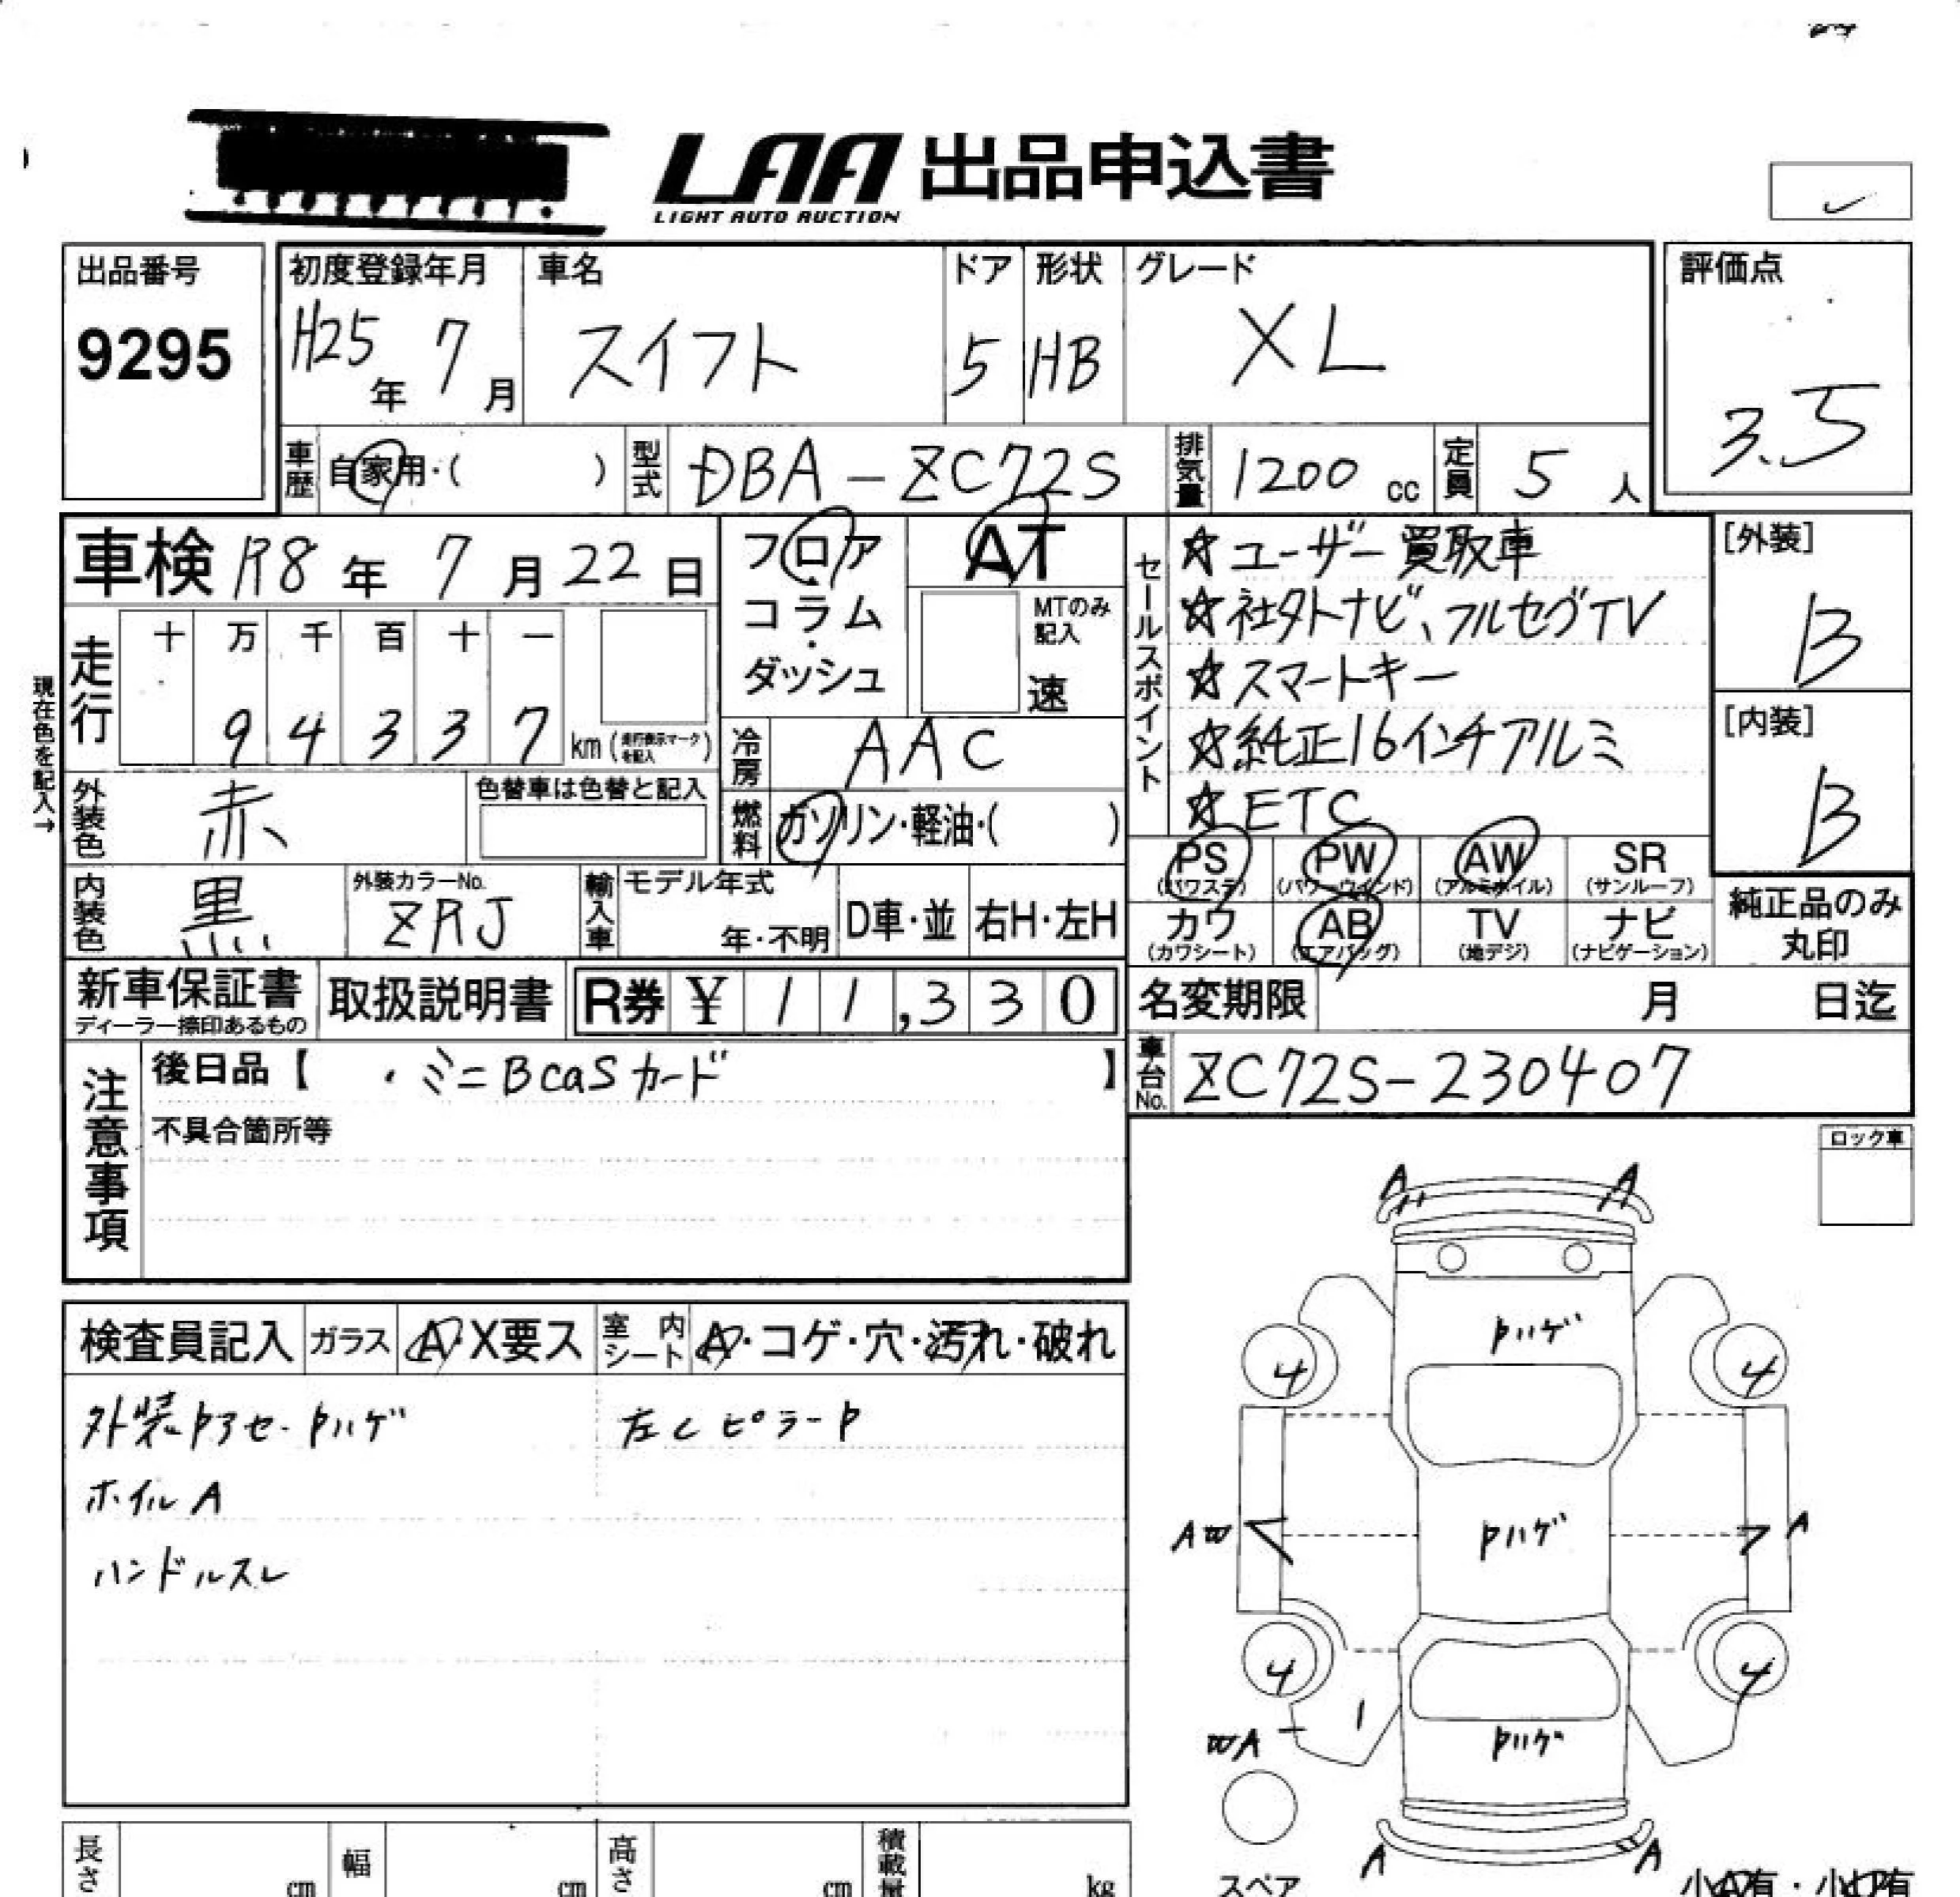 LAA 出品申込書
LIGHT AUTO AUCTION
出品番号
9295
初度登録年月
H25年 7月
車名
スイフト
ドア
5
形状
HB
グレード
XL
評価点
3.5
車歴
自家用・( )
型式
DBA-ZC72S
排気量
1200 cc
定員
5 人
車検 R8年 7月22日
フロア・コラム・ダッシュ
AT
MTのみ記入
速
セールスポイント
☆ユーザー買取車
☆社外ナビ、フルセグTV
☆スマートキー
☆純正16インチアルミ
☆ETC
[外装]
B
[内装]
B
現在色を記入→
走行
十 万 千 百 十 一
9 4 3 3 7 km (走行表示マークを記入)
冷房
AAC
外装色
赤
色替車は色替と記入
燃料
ガソリン・軽油・( )
PS (パワステ)
PW (パワーウィンド)
AW (アルミホイル)
SR (サンルーフ)
カワ (カワシート)
AB (エアバッグ)
TV (地デジ)
ナビ (ナビゲーション)
純正品のみ丸印
内装色
黒
外装カラーNo.
ZRJ
輸入車
モデル年式
年・不明
D車・並
右H・左H
新車保証書
ディーラー捺印あるもの
取扱説明書
R券 ¥ 11,330
名変期限 月 日迄
注意事項
後日品【 ・ミニBcasカード 】
不具合箇所等
車台No.
ZC72S-230407
ロック車
検査員記入
ガラス
A・X要ス
室内シート
A・コゲ・穴・汚れ・破れ
外装Pアセ・Pハゲ
左CピラーP
ホイルA
ハンドルスレ
A A
Pハゲ
4 4
AW Pハゲ A
4 4
WA Pハゲ
A A
スペア
長さ cm
幅 cm
高さ cm
積載量 kg
小A有・小凹有